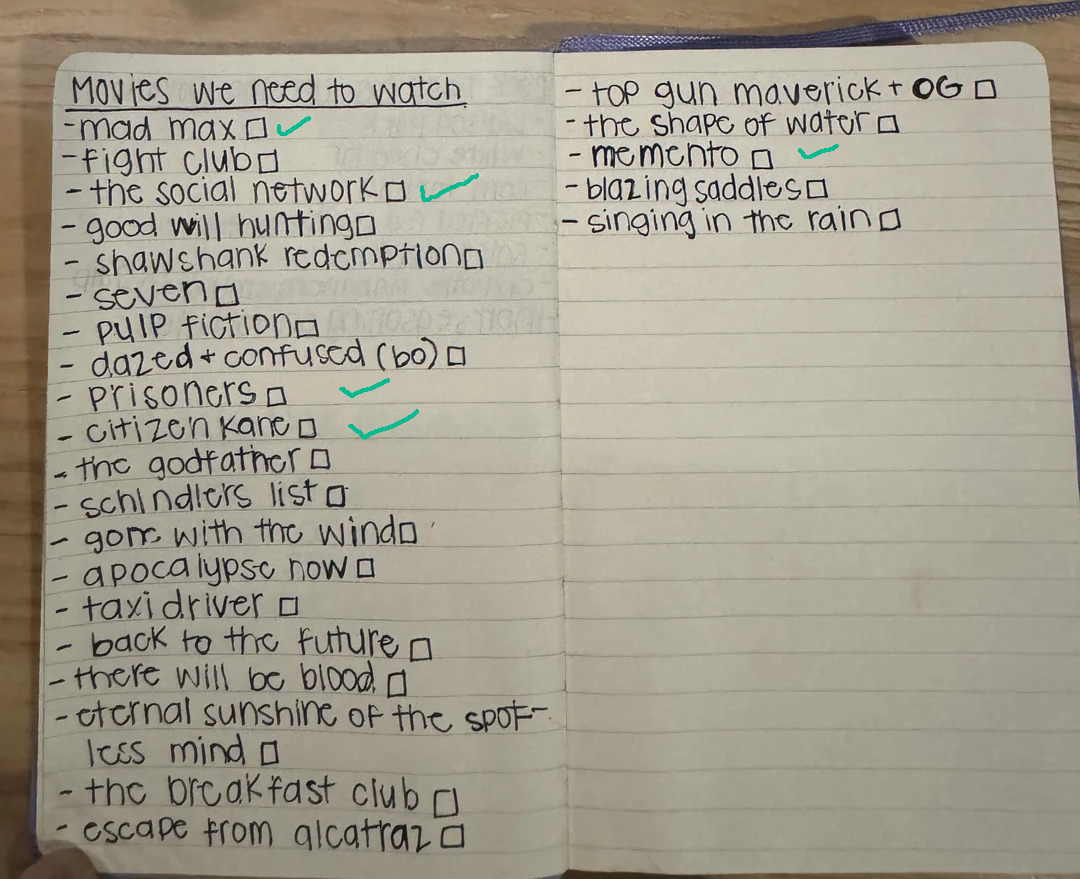 Movies we need to watch
- mad max □ ✓
- fight club □
- the social network □ ✓
- good will hunting □
- shawshank redemption □
- seven □
- pulp fiction □
- dazed + confused (bo) □
- prisoners □ ✓
- citizen kane □ ✓
- the godfather □
- schindlers list □
- gone with the wind □
- apocalypse now □
- taxi driver □
- back to the future □
- there will be blood □
- eternal sunshine of the spot-
less mind □
- the breakfast club □
- escape from alcatraz □
- top gun maverick + OG □
- the shape of water □
- memento □ ✓
- blazing saddles □
- singing in the rain □